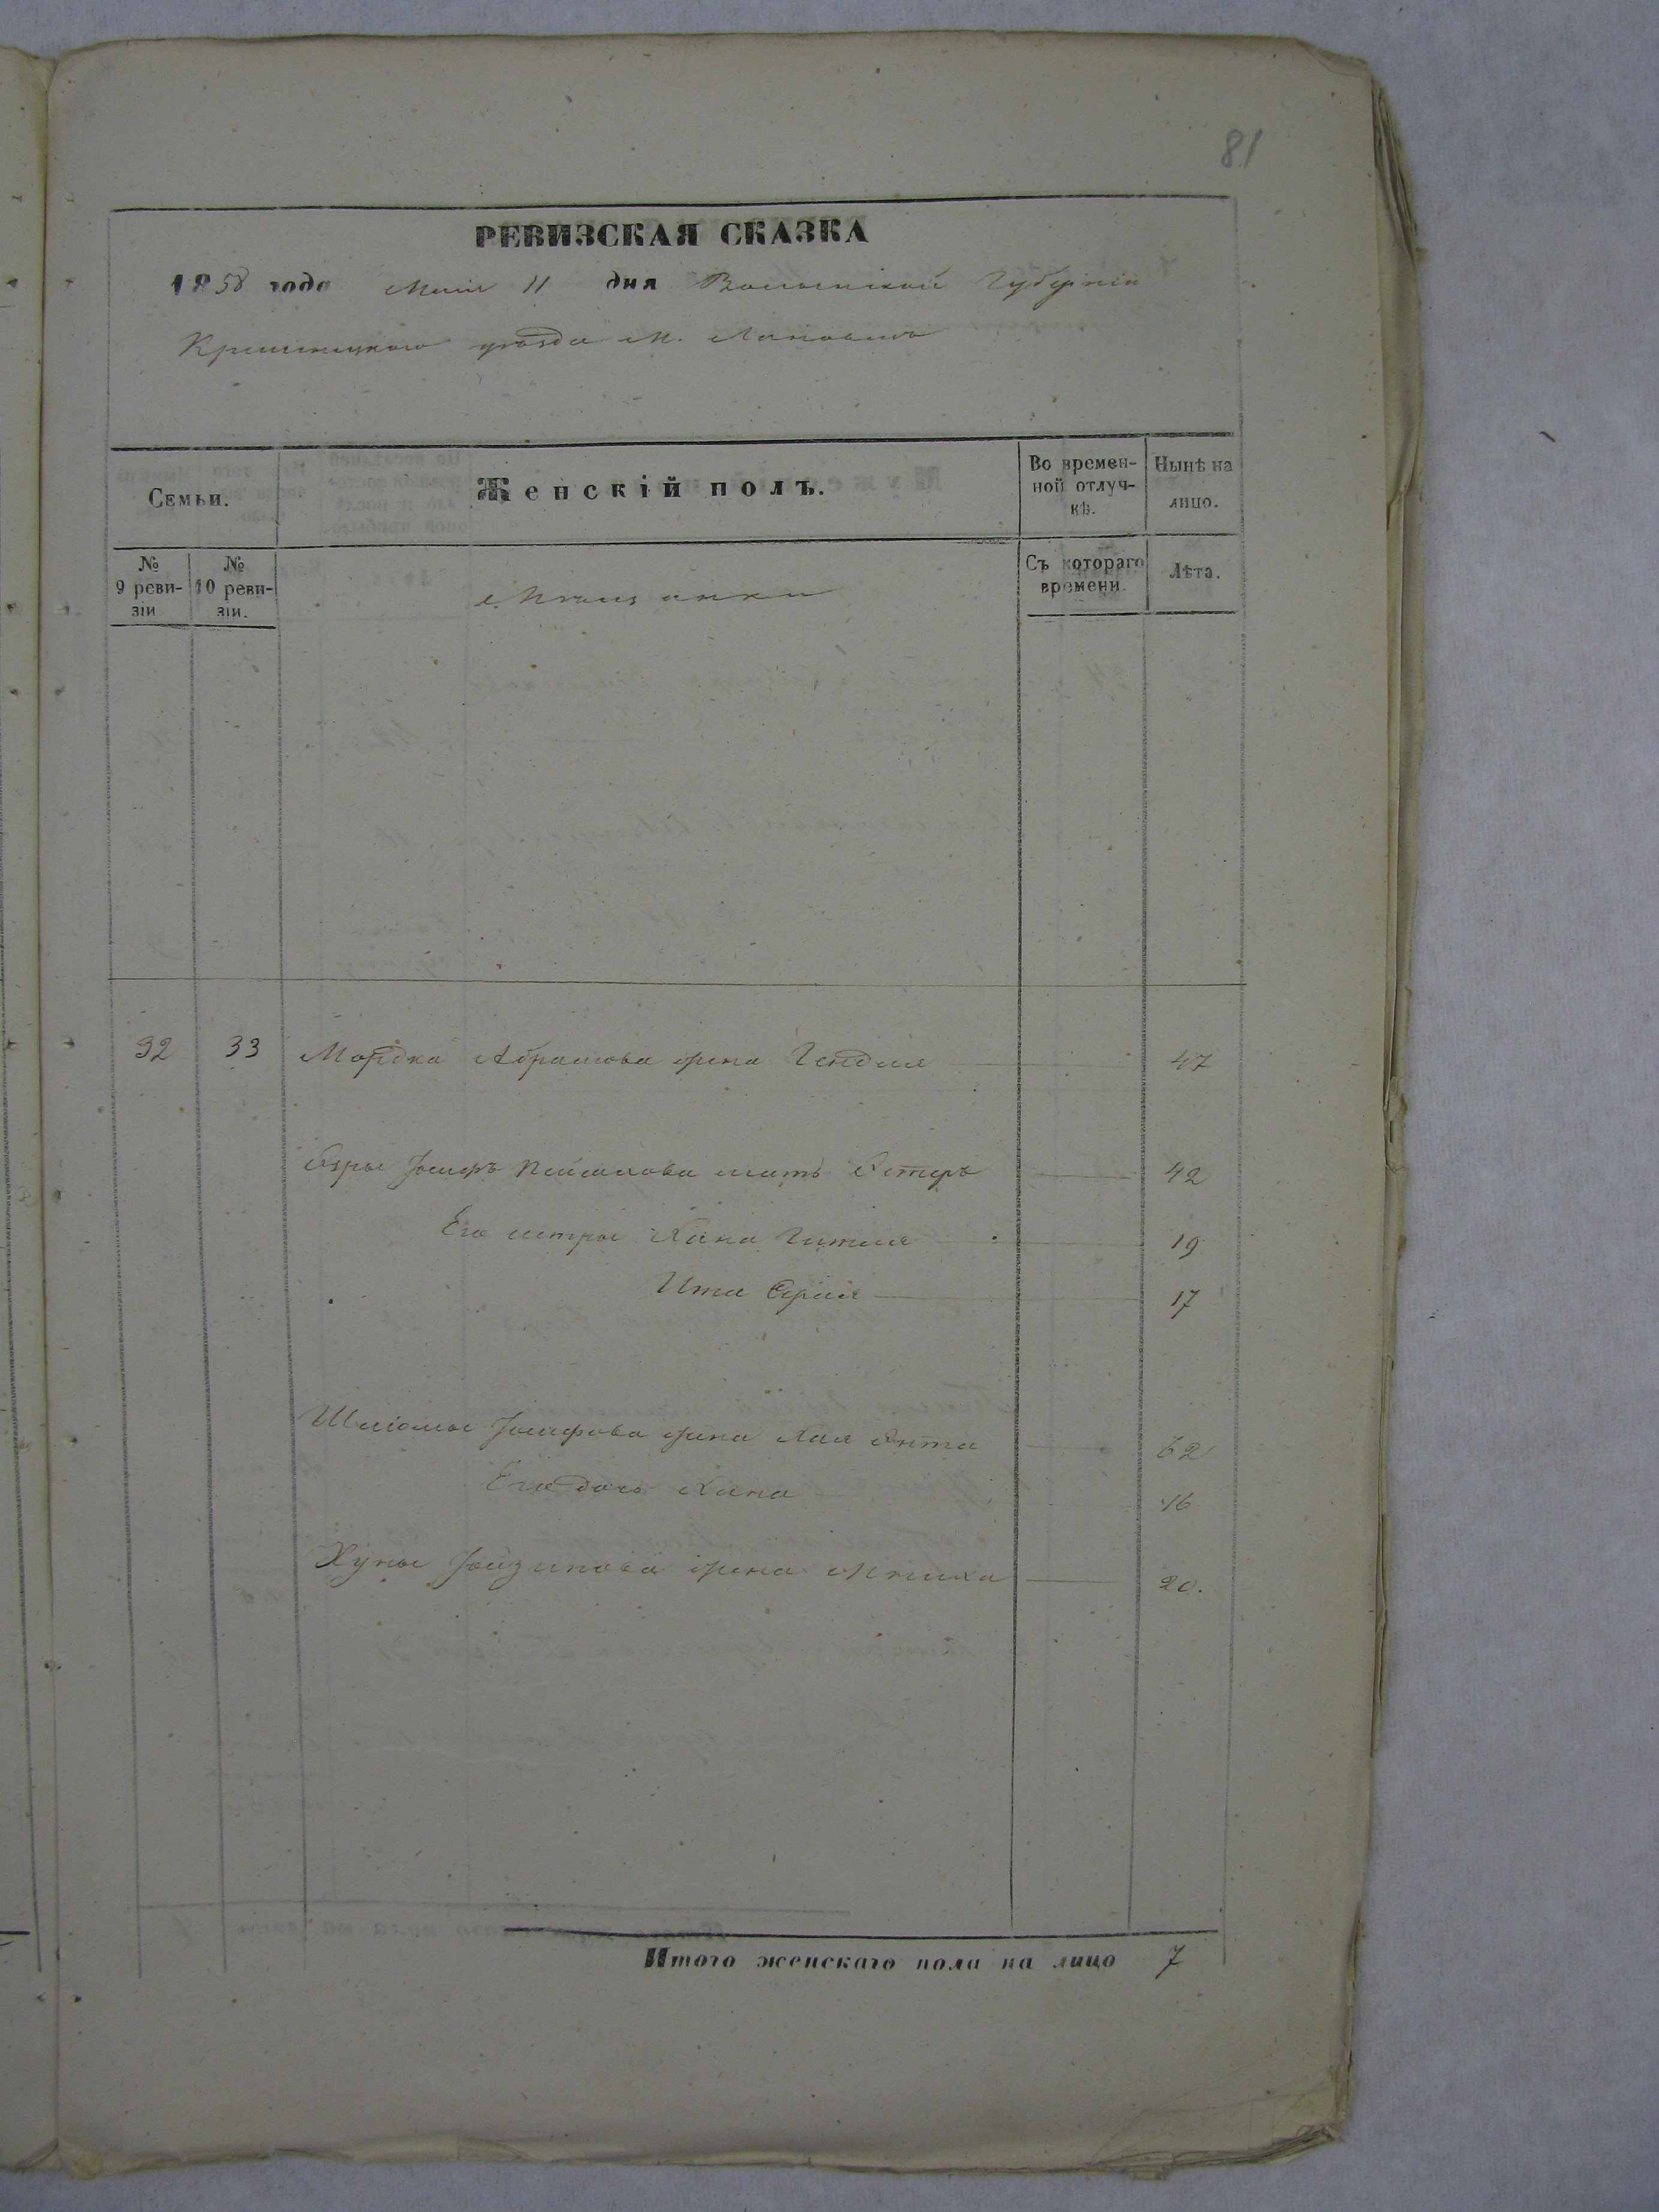 81
РЕВИЗСКАЯ СКАЗКА
1858 года Маія 11 дня Волынской Губерніи
Кременецкого уѣзда М. Лановецъ
Семьи.
Женскій полъ.
Во времен-
ной отлуч-
кѣ.
Нынѣ на
лицо.
№
9 реви-
зіи
№
10 реви-
зіи.
Мѣщанки
Съ котораго
времени.
Лѣта.
32 33 Мордка Абрамова жена Гендля 47
Іосифъ мать Естеръ 42
Его сестры Хана Гитля 19
Ита 17
Шліомы Іосифова жена Хая Ента 62
Его дочь Хана 16
Хуны жена 20.
Итого женскаго пола на лицо 7